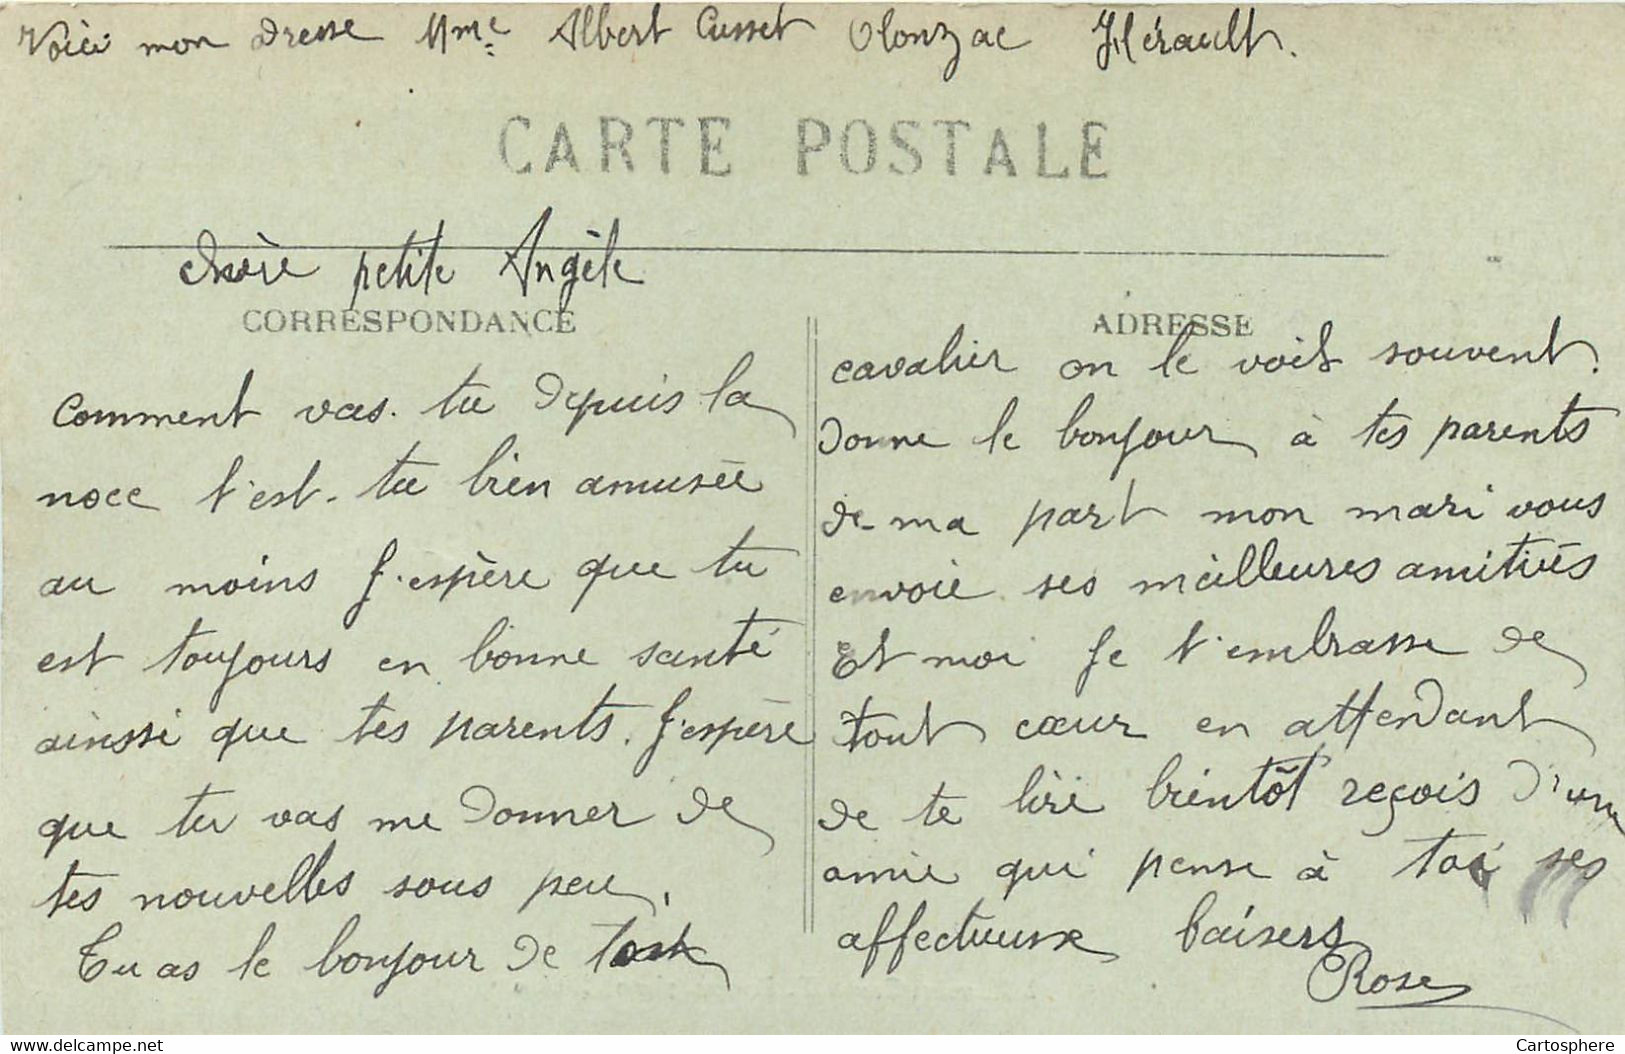 Voici mon dresse Mme Albert Cusset Olonzac Hérault.
CARTE POSTALE
chère petite Angèle
CORRESPONDANCE
comment vas-tu depuis la
noce t'est-tu bien amusée
au moins J'espère que tu
est toujours en bonne santé
ainssi que tes parents. J'espère
que tu vas me donner de
tes nouvelles sous peu,
Tu as le bonjour de ton
ADRESSE
cavalier on le voit souvent.
donne le bonjour à tes parents
de ma part mon mari vous
envoie ses meilleures amitiés
Et moi Je t'embrasse de
tout cœur en attendant
de te lire bientôt reçois d'une
amie qui pense à toi ses
affectueux baisers
Rose
www.delcampe.net
Cartosphere